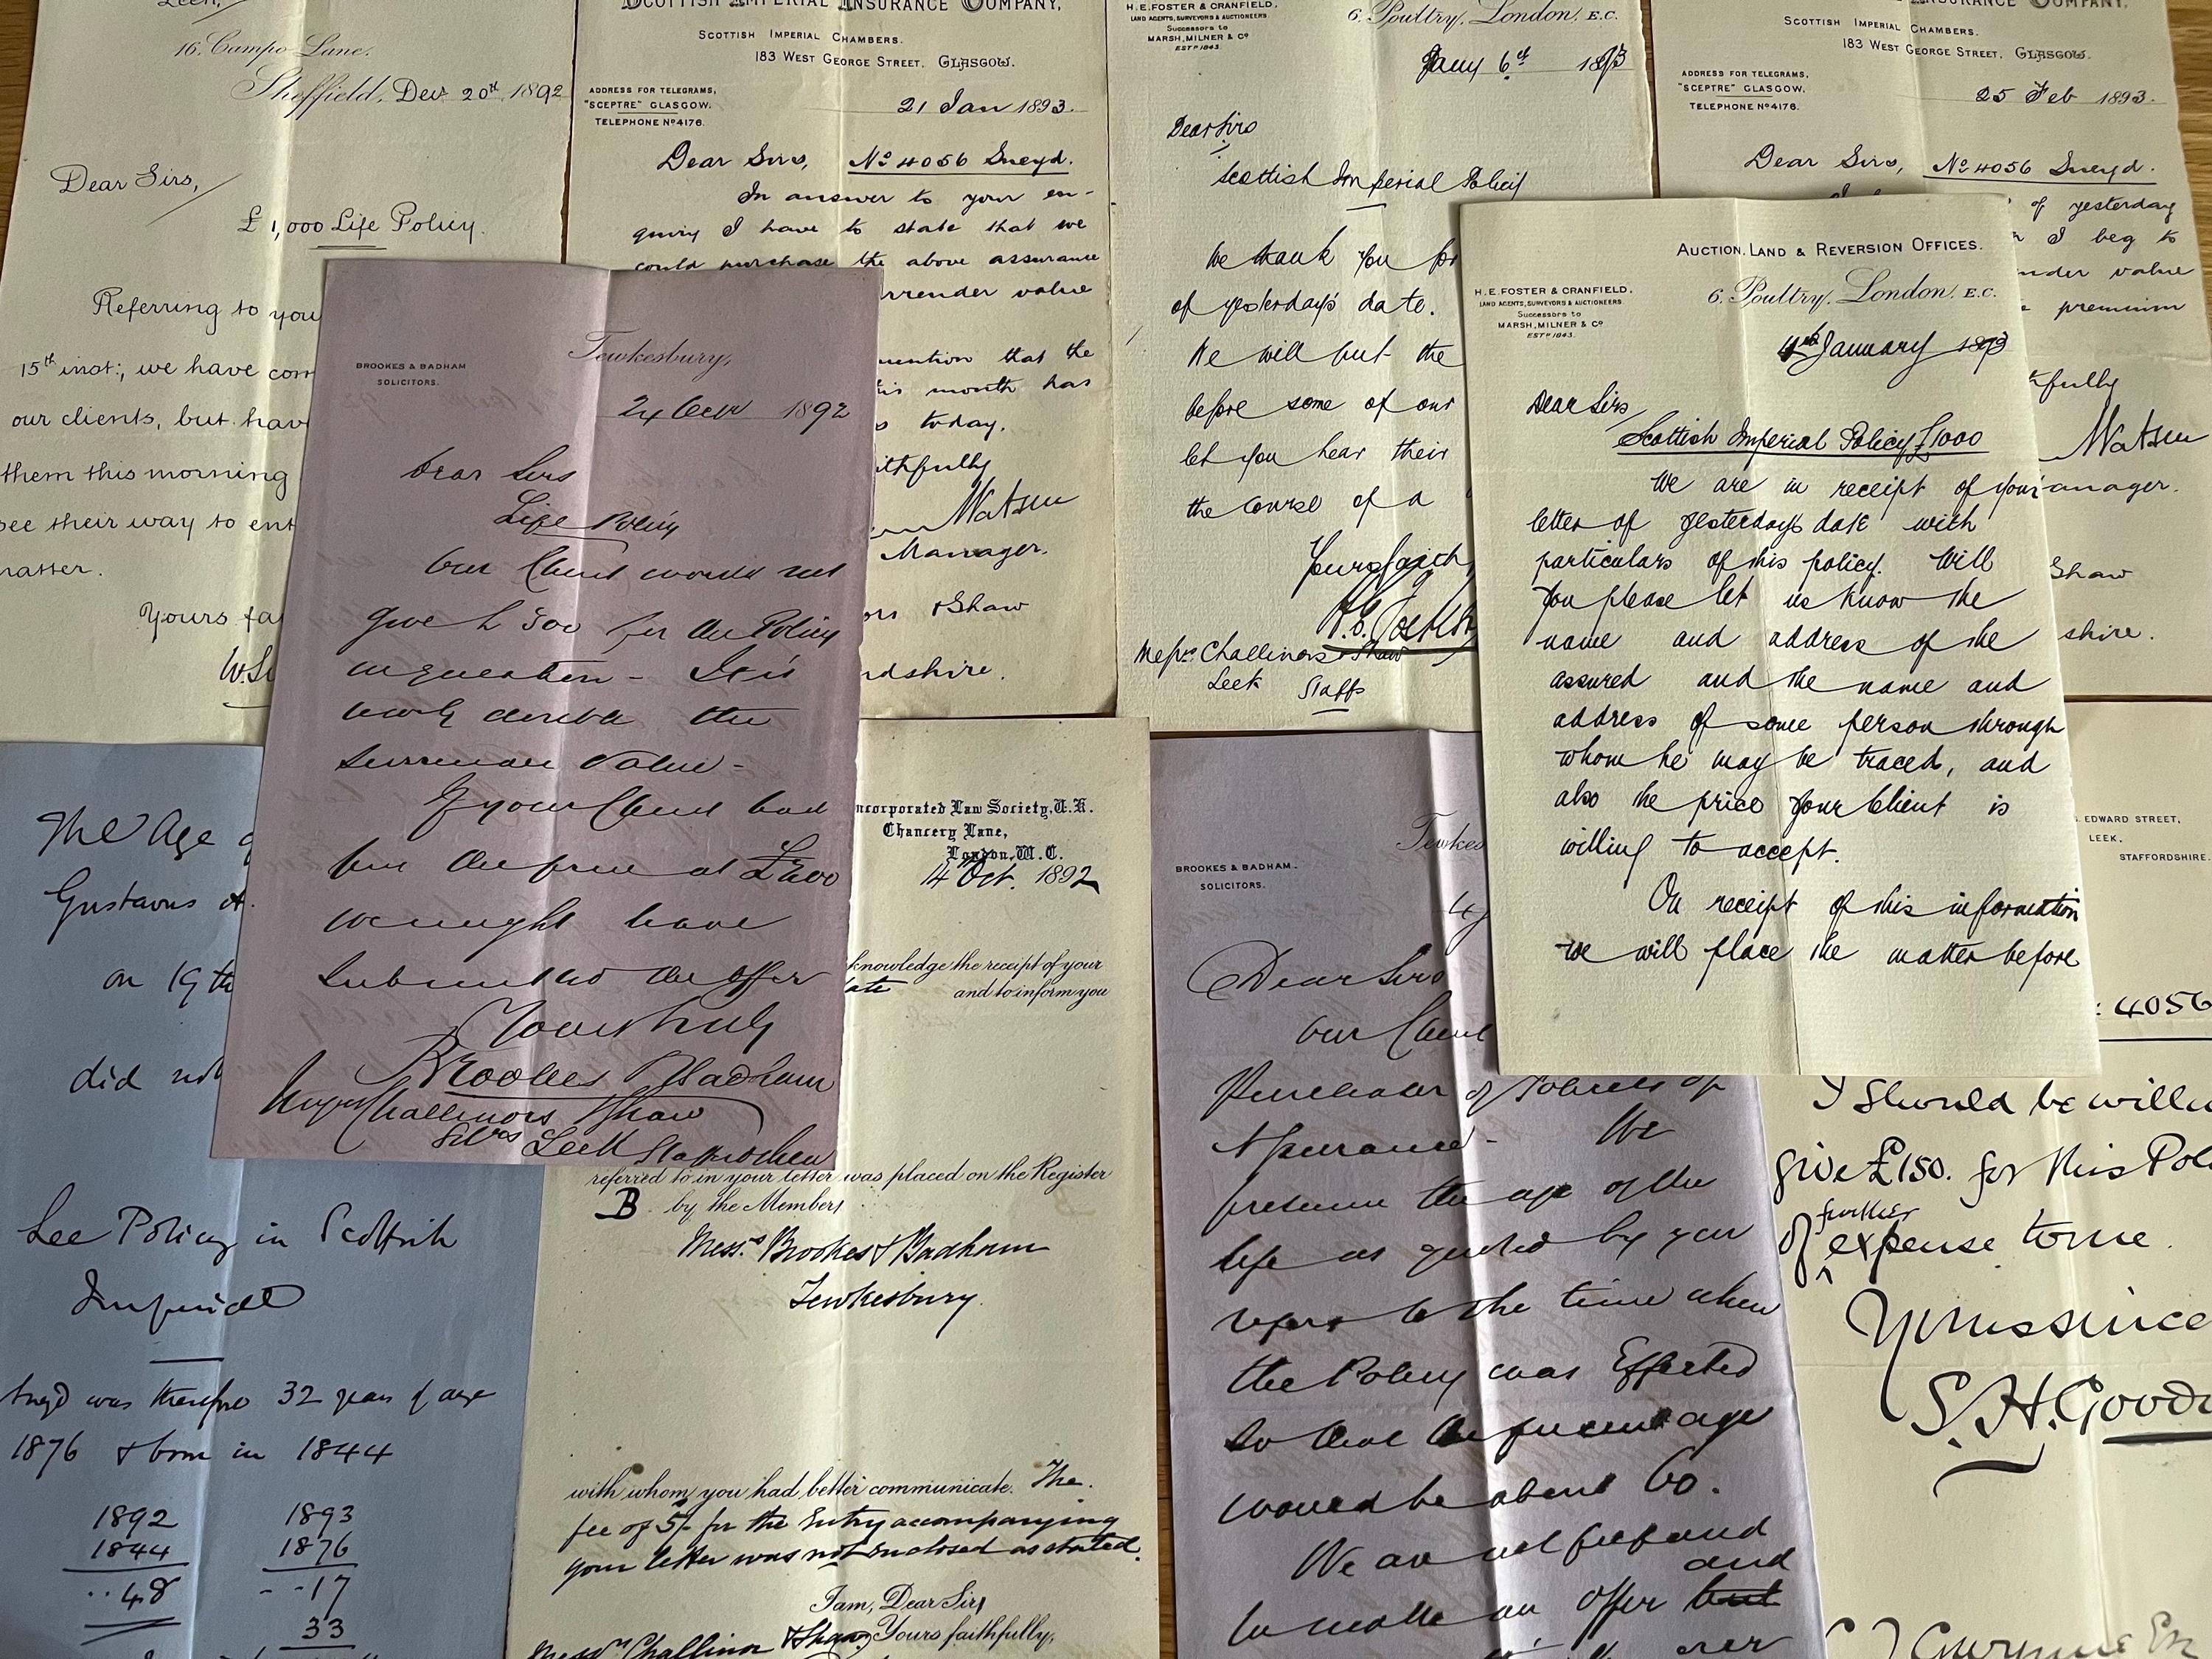 Leek,
16, Campo Lane,
Sheffield, Decr 20th 1892
Dear Sirs,
£1,000 Life Policy.
Referring to you
15th inst:, we have com
our clients, but hav
them this morning
see their way to ent
matter.
Yours fa
SCOTTISH IMPERIAL INSURANCE COMPANY,
SCOTTISH IMPERIAL CHAMBERS.
183 WEST GEORGE STREET, GLASGOW.
ADDRESS FOR TELEGRAMS,
"SCEPTRE" GLASGOW.
TELEPHONE No 4176.
21 Jan 1893.
Dear Sirs, No 4056 Sneyd.
In answer to your en-
quiry I have to state that we
could purchase the above assurance
rrender value
mention that the
is month has
today.
ithfully
Watson
Manager.
ors & Shaw
rdshire.
H. E. FOSTER & CRANFIELD,
LAND AGENTS, SURVEYORS & AUCTIONEERS
Successors to
MARSH, MILNER & Co
ESTD 1843.
6, Poultry, London, E.C.
Jany 6th 1893
Dear Sirs
Scottish Imperial Policy
We thank you for
of yesterday's date.
We will put the
before some of our
let you hear their
the course of a
Yours faith
Messrs Challinors & Shaw
Leek Staffs
INSURANCE COMPANY,
SCOTTISH IMPERIAL CHAMBERS.
183 WEST GEORGE STREET, GLASGOW.
ADDRESS FOR TELEGRAMS,
"SCEPTRE" GLASGOW.
TELEPHONE No 4176.
25 Feb 1893.
Dear Sirs, No 4056 Sneyd.
of yesterday
I beg to
nder value
premium
thfully
Watson
anager.
Shaw
shire.
BROOKES & BADHAM
SOLICITORS.
Tewkesbury,
24 Octr 1892
Dear Sirs
Life Policy
Our Client would not
give £500 for the Policy
in question - It is
nearly double the
surrender value -
If your Client had
put the price at £300
we might have
submitted the offer
Yours truly
Brookes & Badham
Messrs Challinors & Shaw
Solrs Leek Staffordshire
AUCTION, LAND & REVERSION OFFICES.
H. E. FOSTER & CRANFIELD,
LAND AGENTS, SURVEYORS & AUCTIONEERS.
Successors to
MARSH, MILNER & Co
ESTD 1843.
6, Poultry, London, E.C.
4th January 1893
Dear Sirs
Scottish Imperial Policy £1000
We are in receipt of your
letter of yesterday's date with
particulars of this policy. Will
you please let us know the
name and address of the
assured and the name and
address of some person through
whom he may be traced, and
also the price your Client is
willing to accept.
On receipt of this information
we will place the matter before
The Age o
Gustavus A.
on 19th
did not
See Policy in Scottish
Imperial
Sneyd was therefore 32 years of age
1876 & born in 1844
1892 1893
1844 1876
48 17
33
ncorporated Law Society, U.K.
Chancery Lane,
London, W.C.
14 Oct. 1892
knowledge the receipt of your
ate and to inform you
referred to in your letter was placed on the Register
B by the Members
Messrs Brookes & Badham
Tewkesbury.
with whom you had better communicate. The
fee of 5/- for the Entry accompanying
your letter was not enclosed as stated.
I am, Dear Sir,
Yours faithfully,
Messrs Challinor & Shaw
BROOKES & BADHAM.
SOLICITORS.
Tewkes
Dear Sirs
Our Client
Purchaser of Policies of
Assurance - We
presume the age of the
life as quoted by you
refers to the time when
the Policy was Effected
so that the present age
would be about 60.
We are not prepared
and
to make an offer but
EDWARD STREET,
LEEK,
STAFFORDSHIRE.
: 4056
I should be willin
give £150. for this Pol
further
of expense to me.
Yours since
S. H. Good